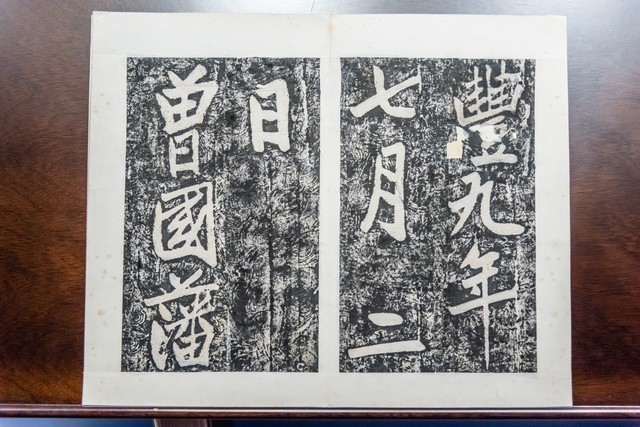 豐九年
七月二
日
曾國藩